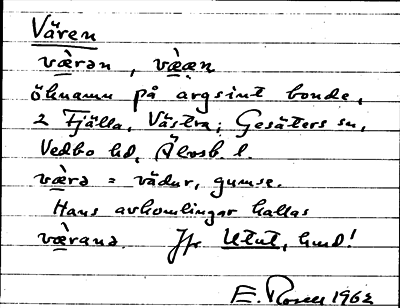 Vären
væ̀rən, væ̀æn
öknamn på argsint bonde,
2 Fjälla, Västra; Gesäters sn,
Vedbo hd, Älvsb. l.
væ̀rə = vädur, gumse.
Hans avkomlingar kallas
væ̀rana. Jfr Utut, hund!
E. Rosell 1962